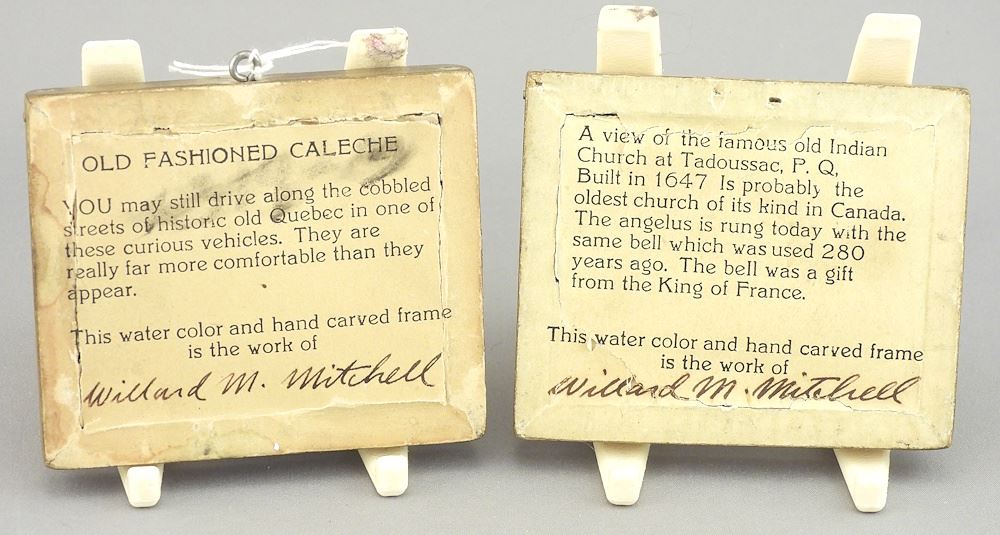 OLD FASHIONED CALECHE
YOU may still drive along the cobbled
streets of historic old Quebec in one of
these curious vehicles. They are
really far more comfortable than they
appear.
This water color and hand carved frame
is the work of
Willard M. Mitchell
A view of the famous old Indian
Church at Tadoussac, P. Q,
Built in 1647 Is probably the
oldest church of its kind in Canada.
The angelus is rung today with the
same bell which was used 280
years ago. The bell was a gift
from the King of France.
This water color and hand carved frame
is the work of
Willard M. Mitchell